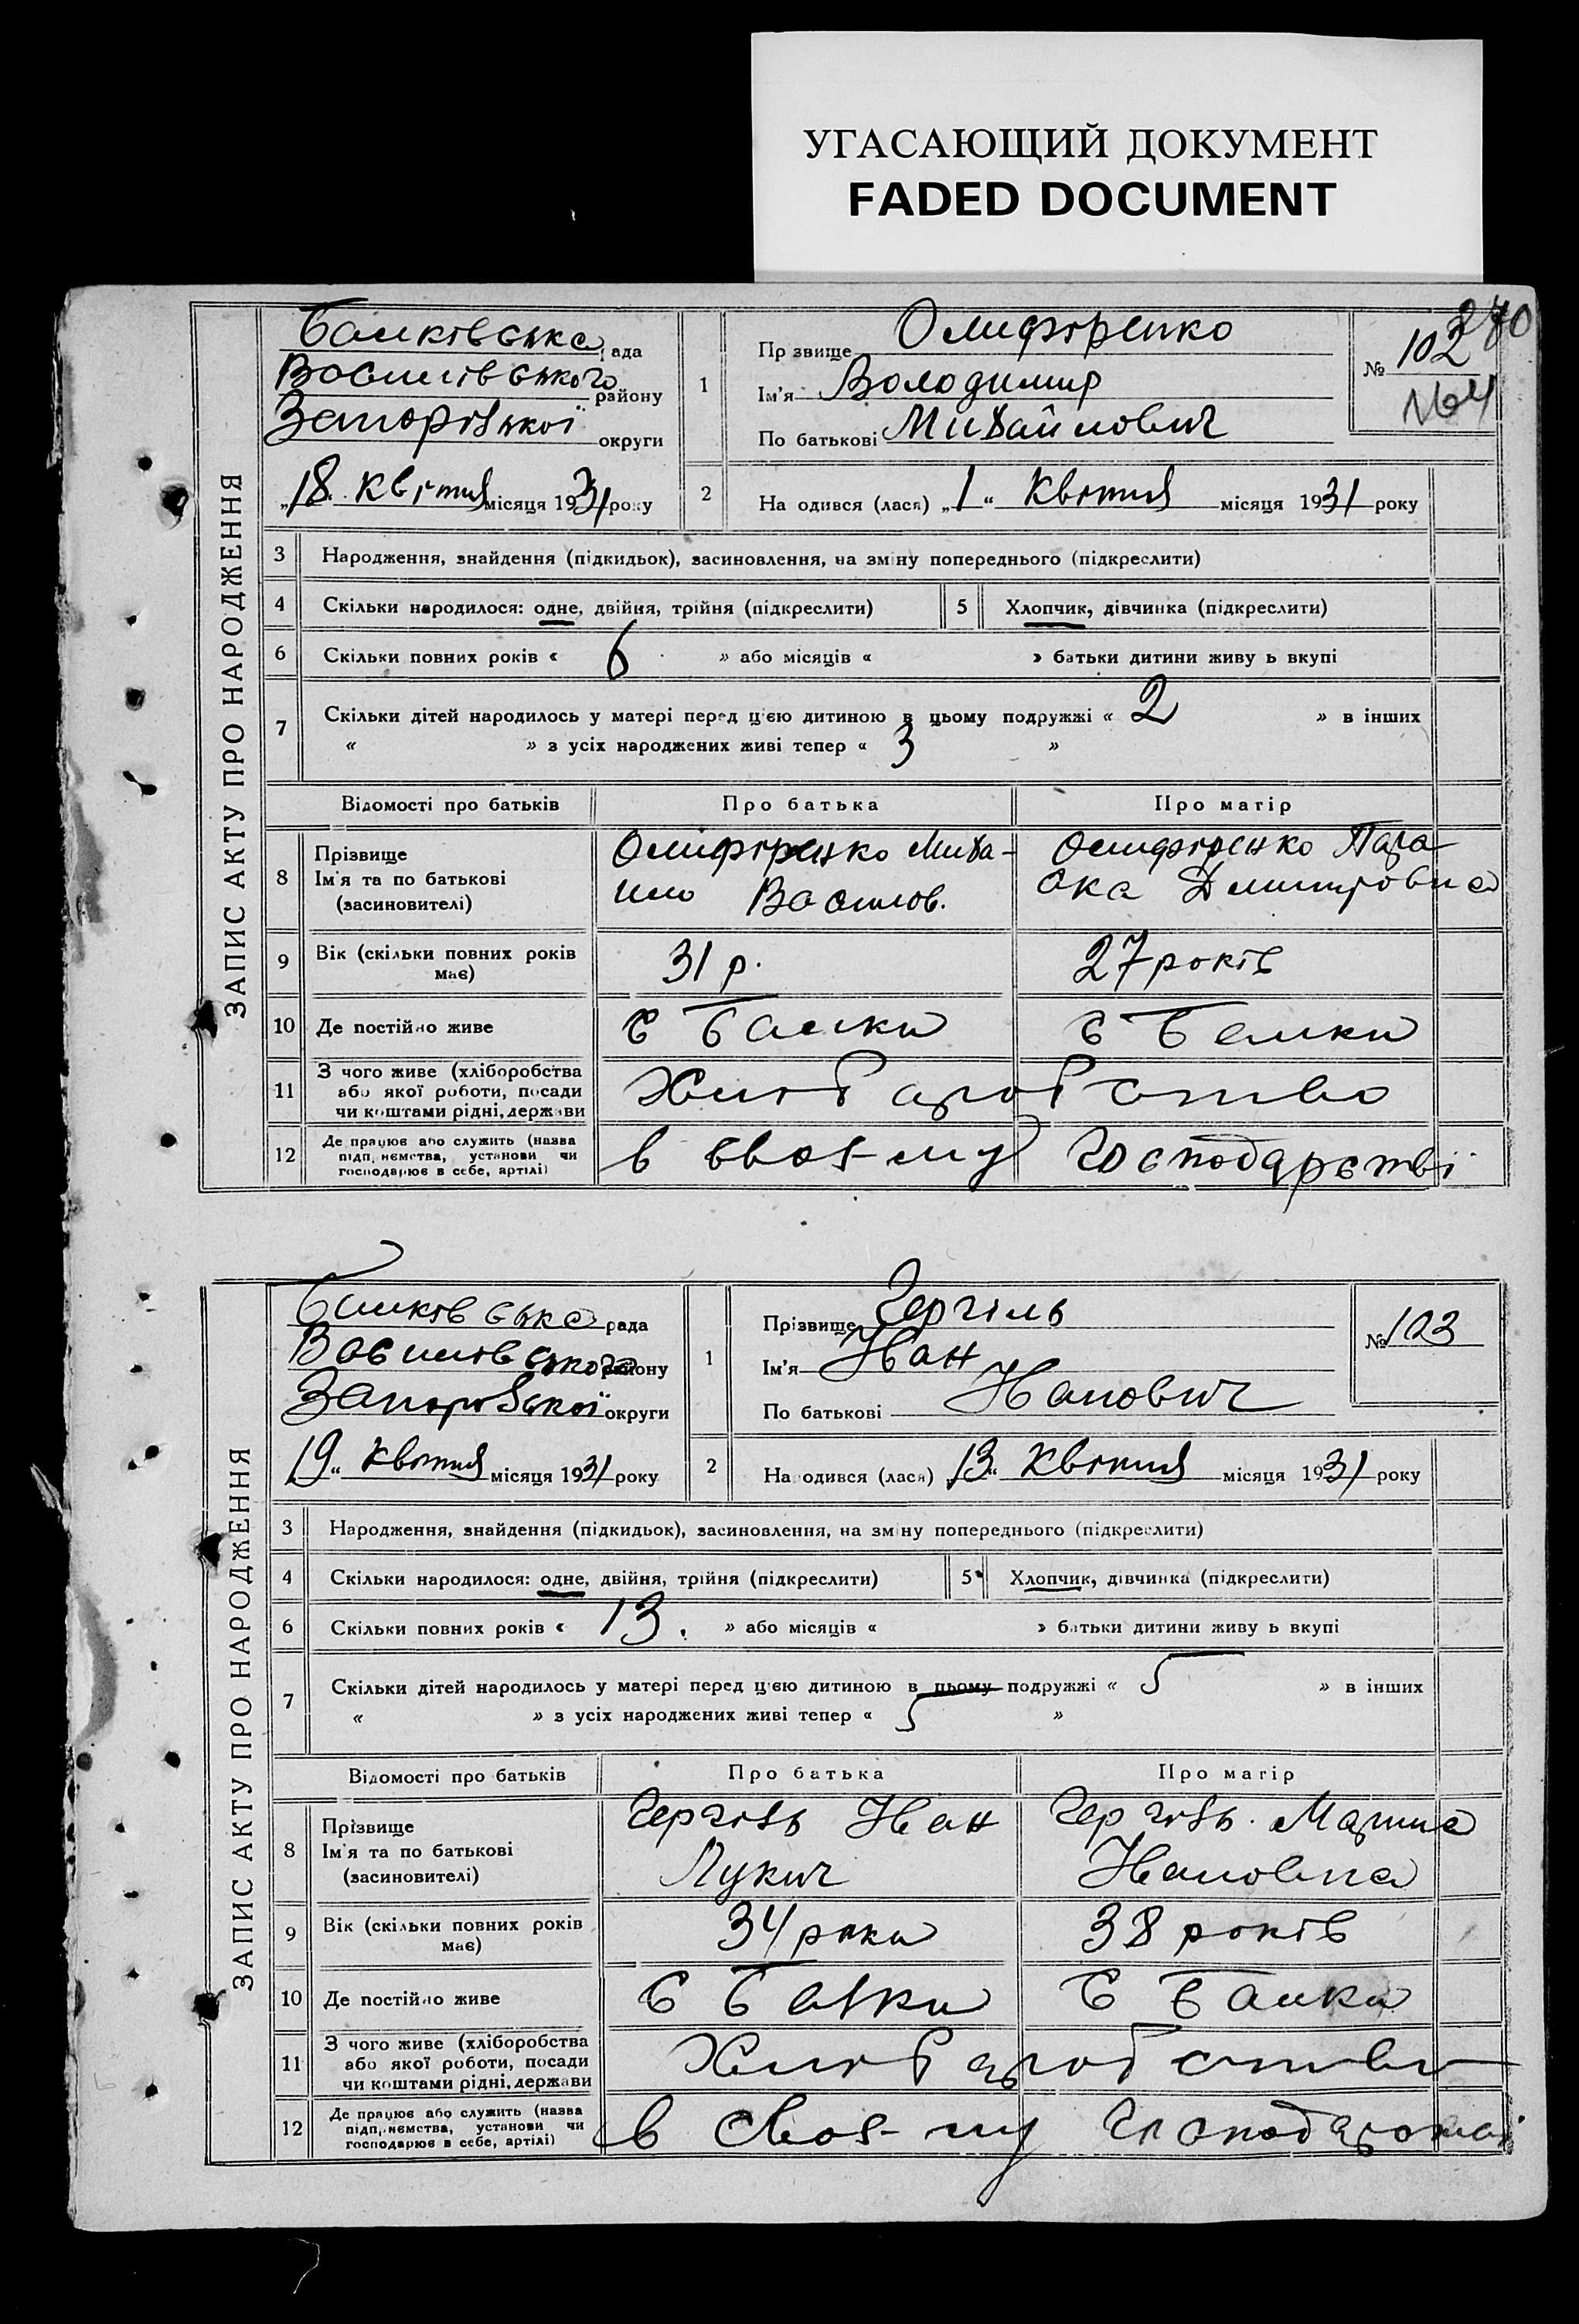 УГАСАЮЩИЙ ДОКУМЕНТ
FADED DOCUMENT
270
ЗАПИС АКТУ ПРО НАРОДЖЕННЯ
Балківська рада
Василівського району
Запорізької округи
„18“ квітня місяця 1931 року
1 Прізвище Олифіренко
Ім'я Володимир
По батькові Михайлович
№ 102
№4
2 Народився (лася) „1“ квітня місяця 1931 року
3 Народження, знайдення (підкидьок), засиновлення, на зміну попереднього (підкреслити)
4 Скільки народилося: одне, двійня, трійня (підкреслити) 5 Хлопчик, дівчинка (підкреслити)
6 Скільки повних років « 6 » або місяців « » батьки дитини живуть вкупі
7 Скільки дітей народилось у матері перед цією дитиною в цьому подружжі « 2 » в інших
« » з усіх народжених живі тепер « 3 »
Відомості про батьків Про батька Про матір
8 Прізвище Ім'я та по батькові (засновителі)
Олифіренко Миха-
йло Василов.
Олифіренко Пара
ска Дмитровна
9 Вік (скільки повних років має) 31 р. 27 років
10 Де постійно живе с Балки с Балки
11 З чого живе (хліборобства
або якої роботи, посади
чи коштами рідні, держави
Хліборобство
12 Де працює або служить (назва
підприємства, установи чи
господарює в себе, артілі)
в своєму господарстві
ЗАПИС АКТУ ПРО НАРОДЖЕННЯ
Балківська рада
Василівського району
Запорізької округи
„19“ квітня місяця 1931 року
1 Прізвище
Ім'я Іван
По батькові Іванович
№ 103
2 Народився (лася) „13“ квітня місяця 1931 року
3 Народження, знайдення (підкидьок), засиновлення, на зміну попереднього (підкреслити)
4 Скільки народилося: одне, двійня, трійня (підкреслити) 5 Хлопчик, дівчинка (підкреслити)
6 Скільки повних років « 13. » або місяців « » батьки дитини живуть вкупі
7 Скільки дітей народилось у матері перед цією дитиною в цьому подружжі « 5 » в інших
« » з усіх народжених живі тепер « 5 »
Відомості про батьків Про батька Про матір
8 Прізвище
Ім'я та по батькові
(засиновителі)
Іван
Лукич
Марина
Івановна
9 Вік (скільки повних років має) 34 роки 38 років
10 Де постійно живе с Балки с Балки
11 З чого живе (хліборобства
або якої роботи, посади
чи коштами рідні, держави
Хліборобство
12 Де працює або служить (назва
підприємства, установи чи
господарює в себе, артілі)
в своєму господарстві